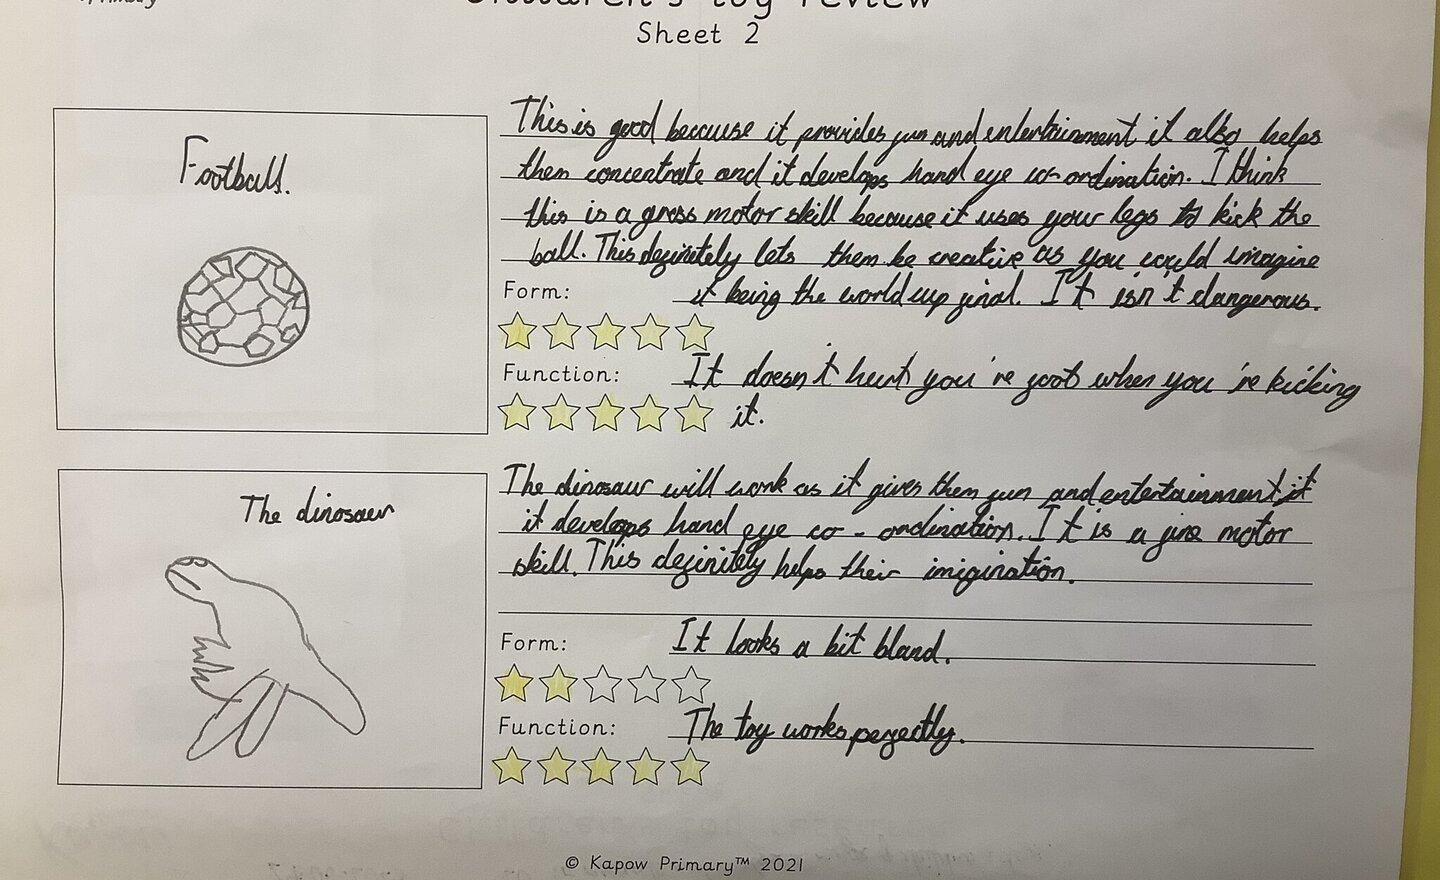 Children's toy review
Sheet 2
Football.
This is good because it provides fun and entertainment it also helps
them concentrate and it develops hand eye co-ordination. I think
this is a gross motor skill because it uses your legs to kick the
ball. This definitely lets them be creative as you could imagine
Form: it being the world cup final. It isn't dangerous.
Function: It doesn't hurt you're foot when you're kicking
it.
The dinosaur
The dinosaur will work as it gives them fun and entertainment it
it develops hand eye co-ordination. It is a fine motor
skill. This definitely helps their imigination.
Form: It looks a bit bland.
Function: The toy works perfectly.
© Kapow Primary™ 2021